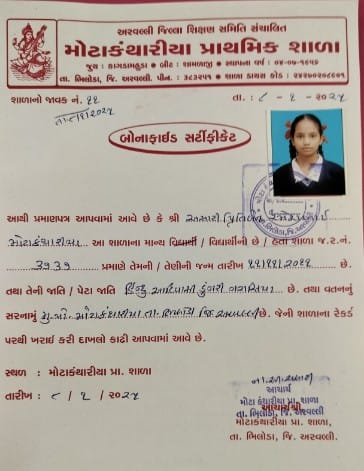 અરવલ્લી જિલ્લા શિક્ષણ સમિતિ સંચાલિત
મોટાકંથારીયા પ્રાથમિક શાળા
જુથ : કાગડામહુડા • બીટ : શામળાજી • સ્થાપના વર્ષ : ૦૪-૦૭-૧૯૫૭
તા. ભિલોડા, જિ. અરવલ્લી. પીન. : ૩૮૩૨૫૧ • શાળા ડાયસ કોડ : ૨૪૨૭૦૨૦૯૦૦૧
શાળાનો જાવક નં. ૧૧
તા. : ૮ - ૧ - ૨૦૨૫
તા. ૮/૧/૨૦૨૫
બોનાફાઈડ સર્ટીફીકેટ
આથી પ્રમાણપત્ર આપવામાં આવે છે કે શ્રી અસારી
મોટાકંથારીયા આ શાળાના માન્ય વિદ્યાર્થી / વિદ્યાર્થીની છે / હતા શાળા જ.ર.નં.
૩૧૩૧ પ્રમાણે તેમની / તેણીની જન્મ તારીખ ૧૧/૧૧/૨૦૧૧ છે.
તથા તેની જાતિ / પેટા જાતિ હિન્દુ આદિવાસી ડુંગરી ગરાસિયા છે. તથા વતનનું
સરનામું મુ.પો. મોટાકંથારીયા તા. ભિલોડા જિ. અરવલ્લી છે. જેની શાળાના રેકર્ડ
પરથી ખરાઈ કરી દાખલો કાઢી આપવામાં આવે છે.
સ્થળ : મોટાકંથારીયા પ્રા. શાળા
તારીખ : ૮ / ૧ / ૨૦૨૫
આચાર્ય
મોટા કંથારીયા પ્રા. શાળા
આચાર્યશ્રી
તા. ભિલોડા, જિ. અરવલ્લી
મોટાકંથારીયા પ્રા. શાળા,
તા. ભિલોડા, જિ. અરવલ્લી.